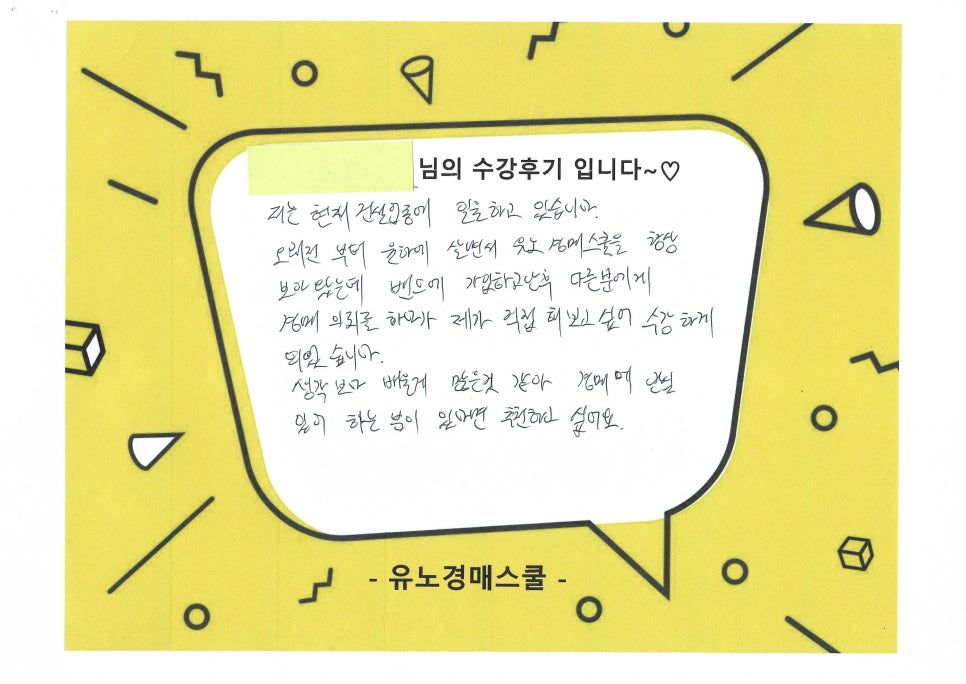 님의 수강후기 입니다~♡
저는 현재 건설업종에 일을하고 있습니다.
오래전 부터 율하에 살면서 유노경매스쿨을 항상
보아 왔는데 밴드에 가입하고난후 다른분에게
경매 의뢰를 하려다 제가 직접 해보고 싶어 수강 하게
되었습니다.
생각 보다 배울게 많은것 같아 경매에 관심
있어 하는 분이 있다면 추천하고 싶어요.
- 유노경매스쿨 -